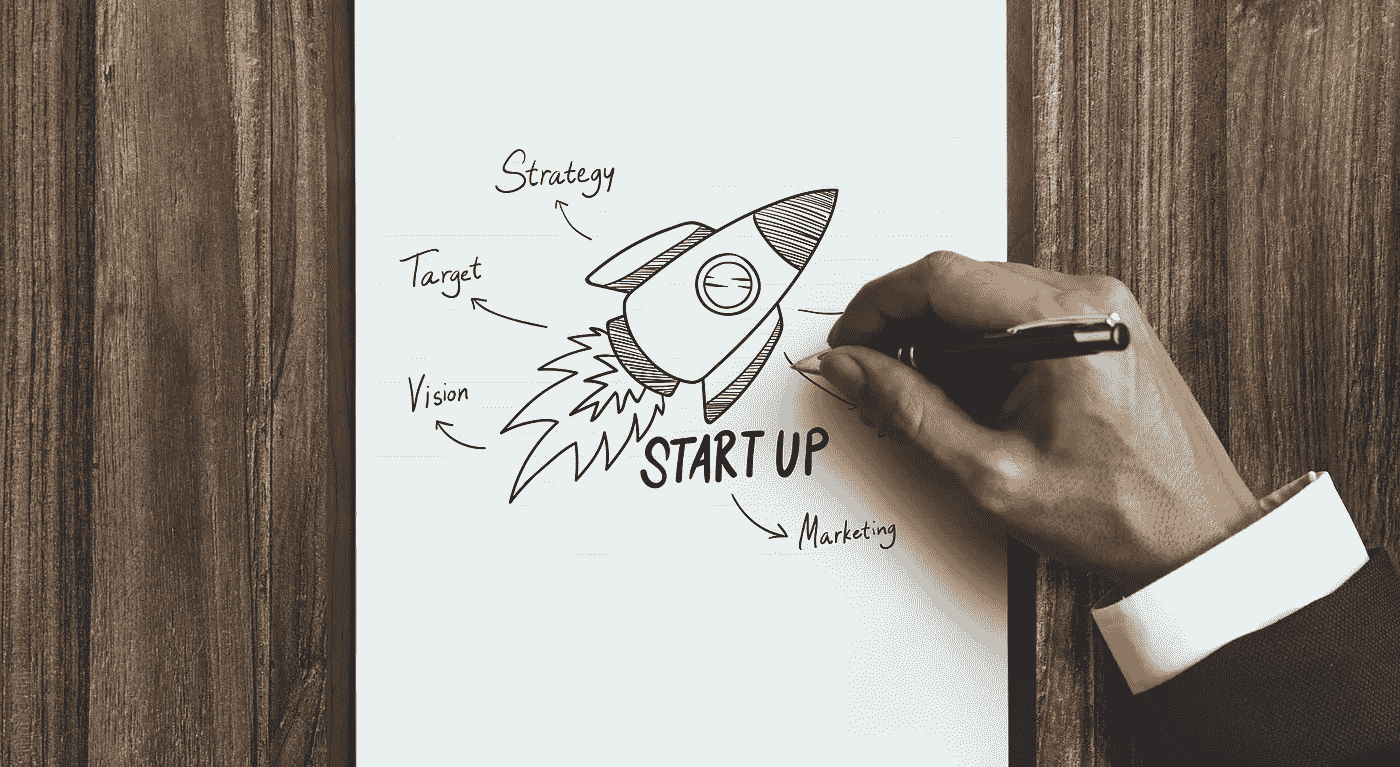 Strategy
Target
Vision
START UP
Marketing